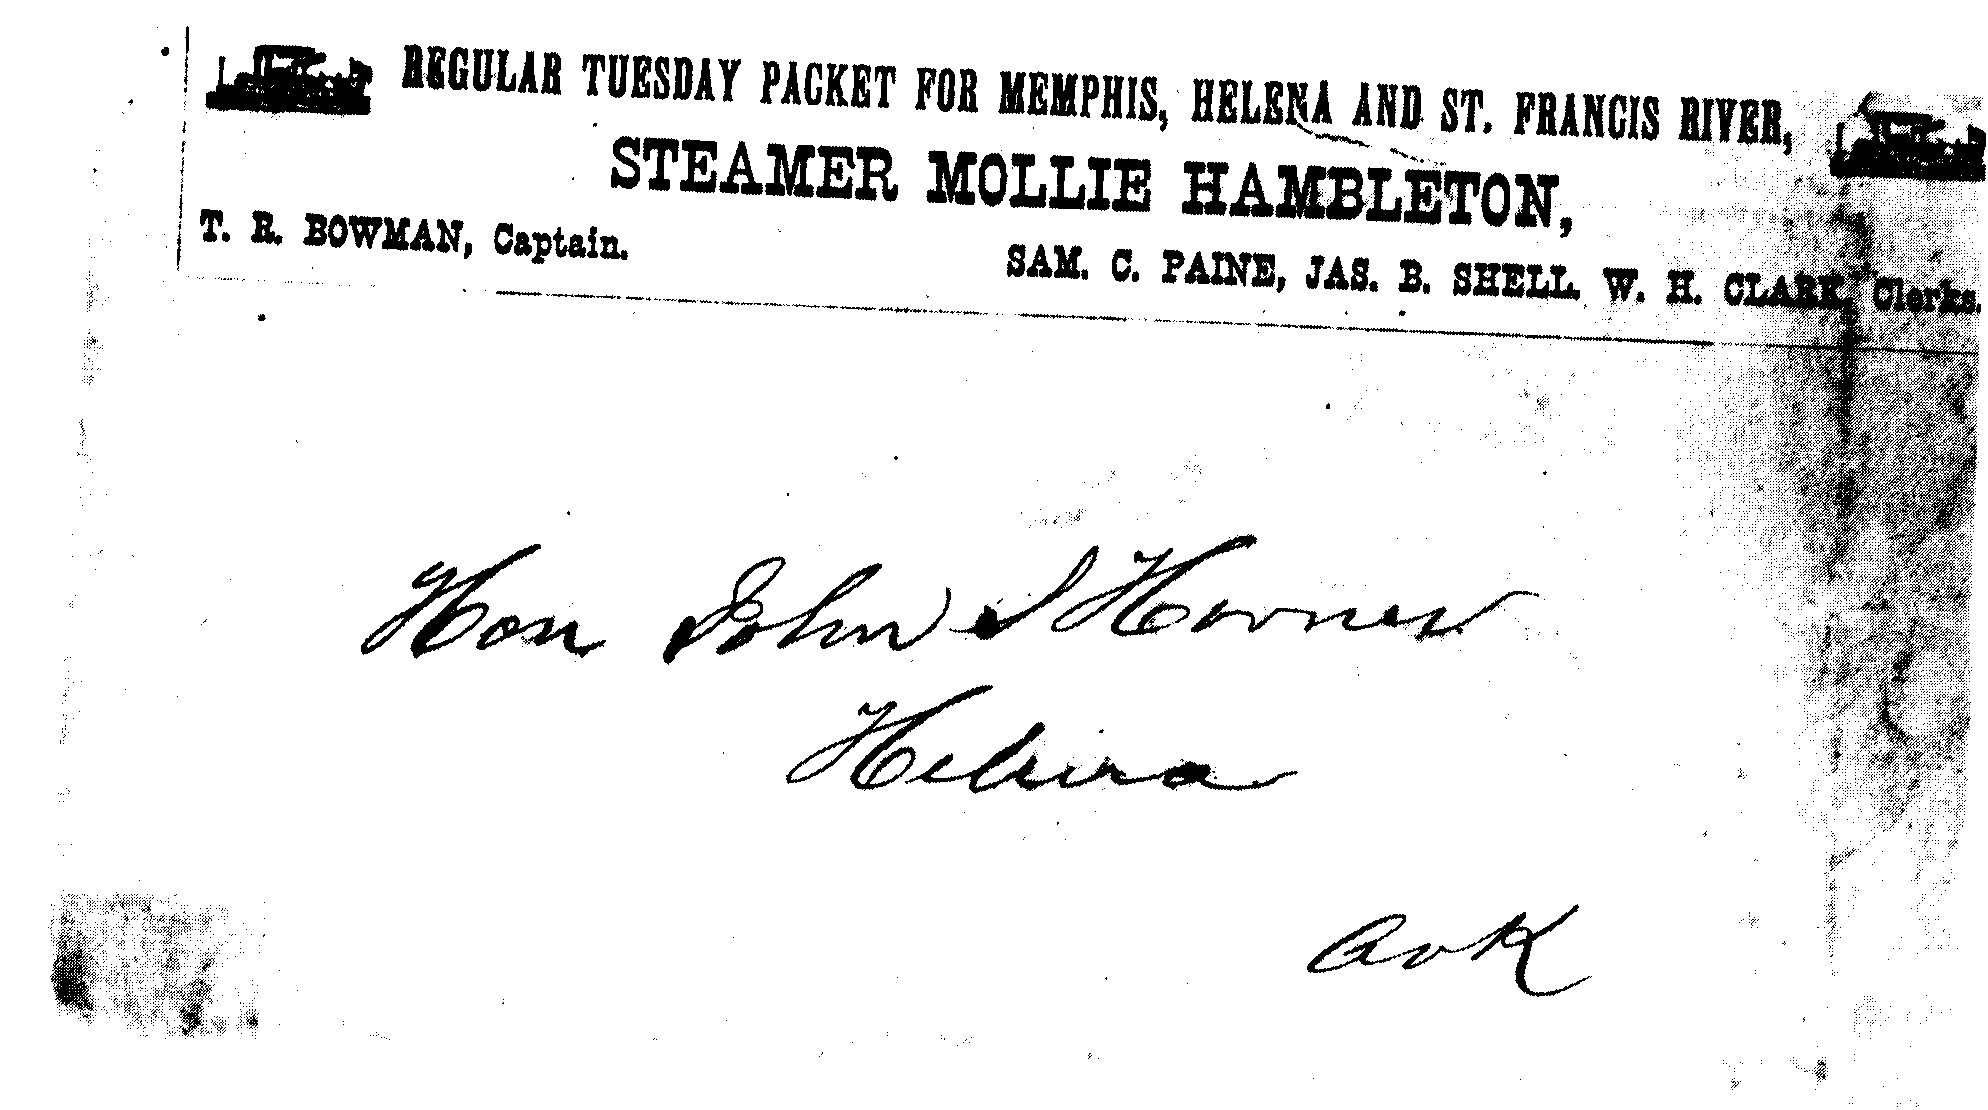 REGULAR TUESDAY PACKET FOR MEMPHIS, HELENA AND ST. FRANCIS RIVER,
STEAMER MOLLIE HAMBLETON,
T. R. BOWMAN, Captain. SAM. C. PAINE, JAS. B. SHELL. W. H. CLARK, Clerks.
Hon John S Horner
Helena
Ark